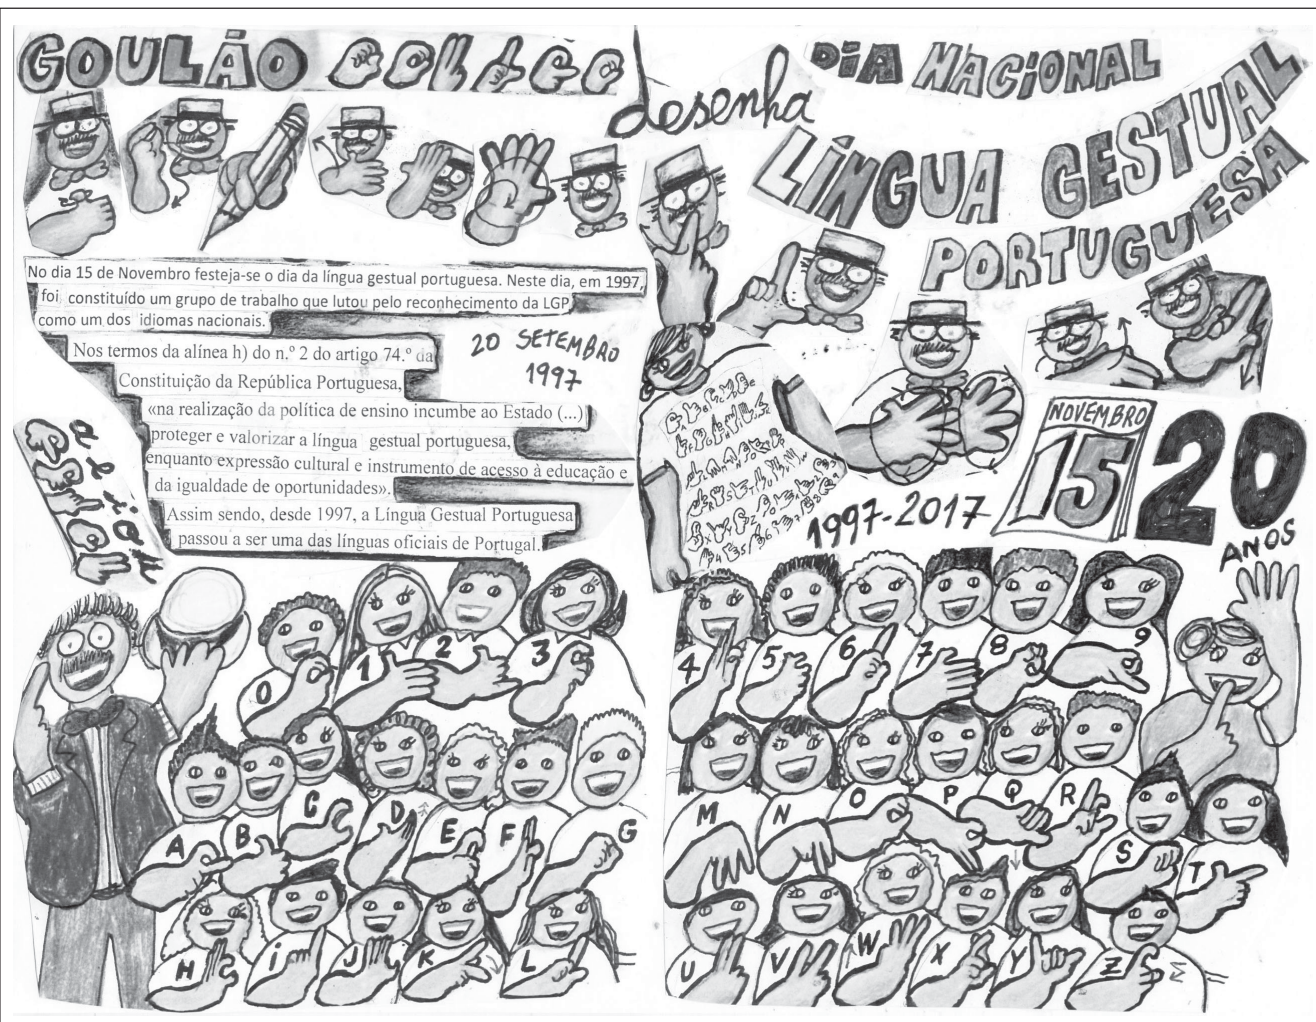 GOULÃO
desenha
DiA NACiONAL
LÍNGUA GESTUAL
PORTUGUESA
No dia 15 de Novembro festeja-se o dia da língua gestual portuguesa. Neste dia, em 1997,
foi constituído um grupo de trabalho que lutou pelo reconhecimento da LGP
como um dos idiomas nacionais.
20 SETEMBRO
1997
Nos termos da alínea h) do n.º 2 do artigo 74.º da
Constituição da República Portuguesa,
«na realização da política de ensino incumbe ao Estado (...)
proteger e valorizar a língua gestual portuguesa,
enquanto expressão cultural e instrumento de acesso à educação e
da igualdade de oportunidades».
Assim sendo, desde 1997, a Língua Gestual Portuguesa
passou a ser uma das línguas oficiais de Portugal.
NOVEMBRO
15
20
ANOS
1997-2017
0 1 2 3
4 5 6 7 8 9
A B C D E F G
H i J K L
M N O P Q R S T
U V W X Y Z